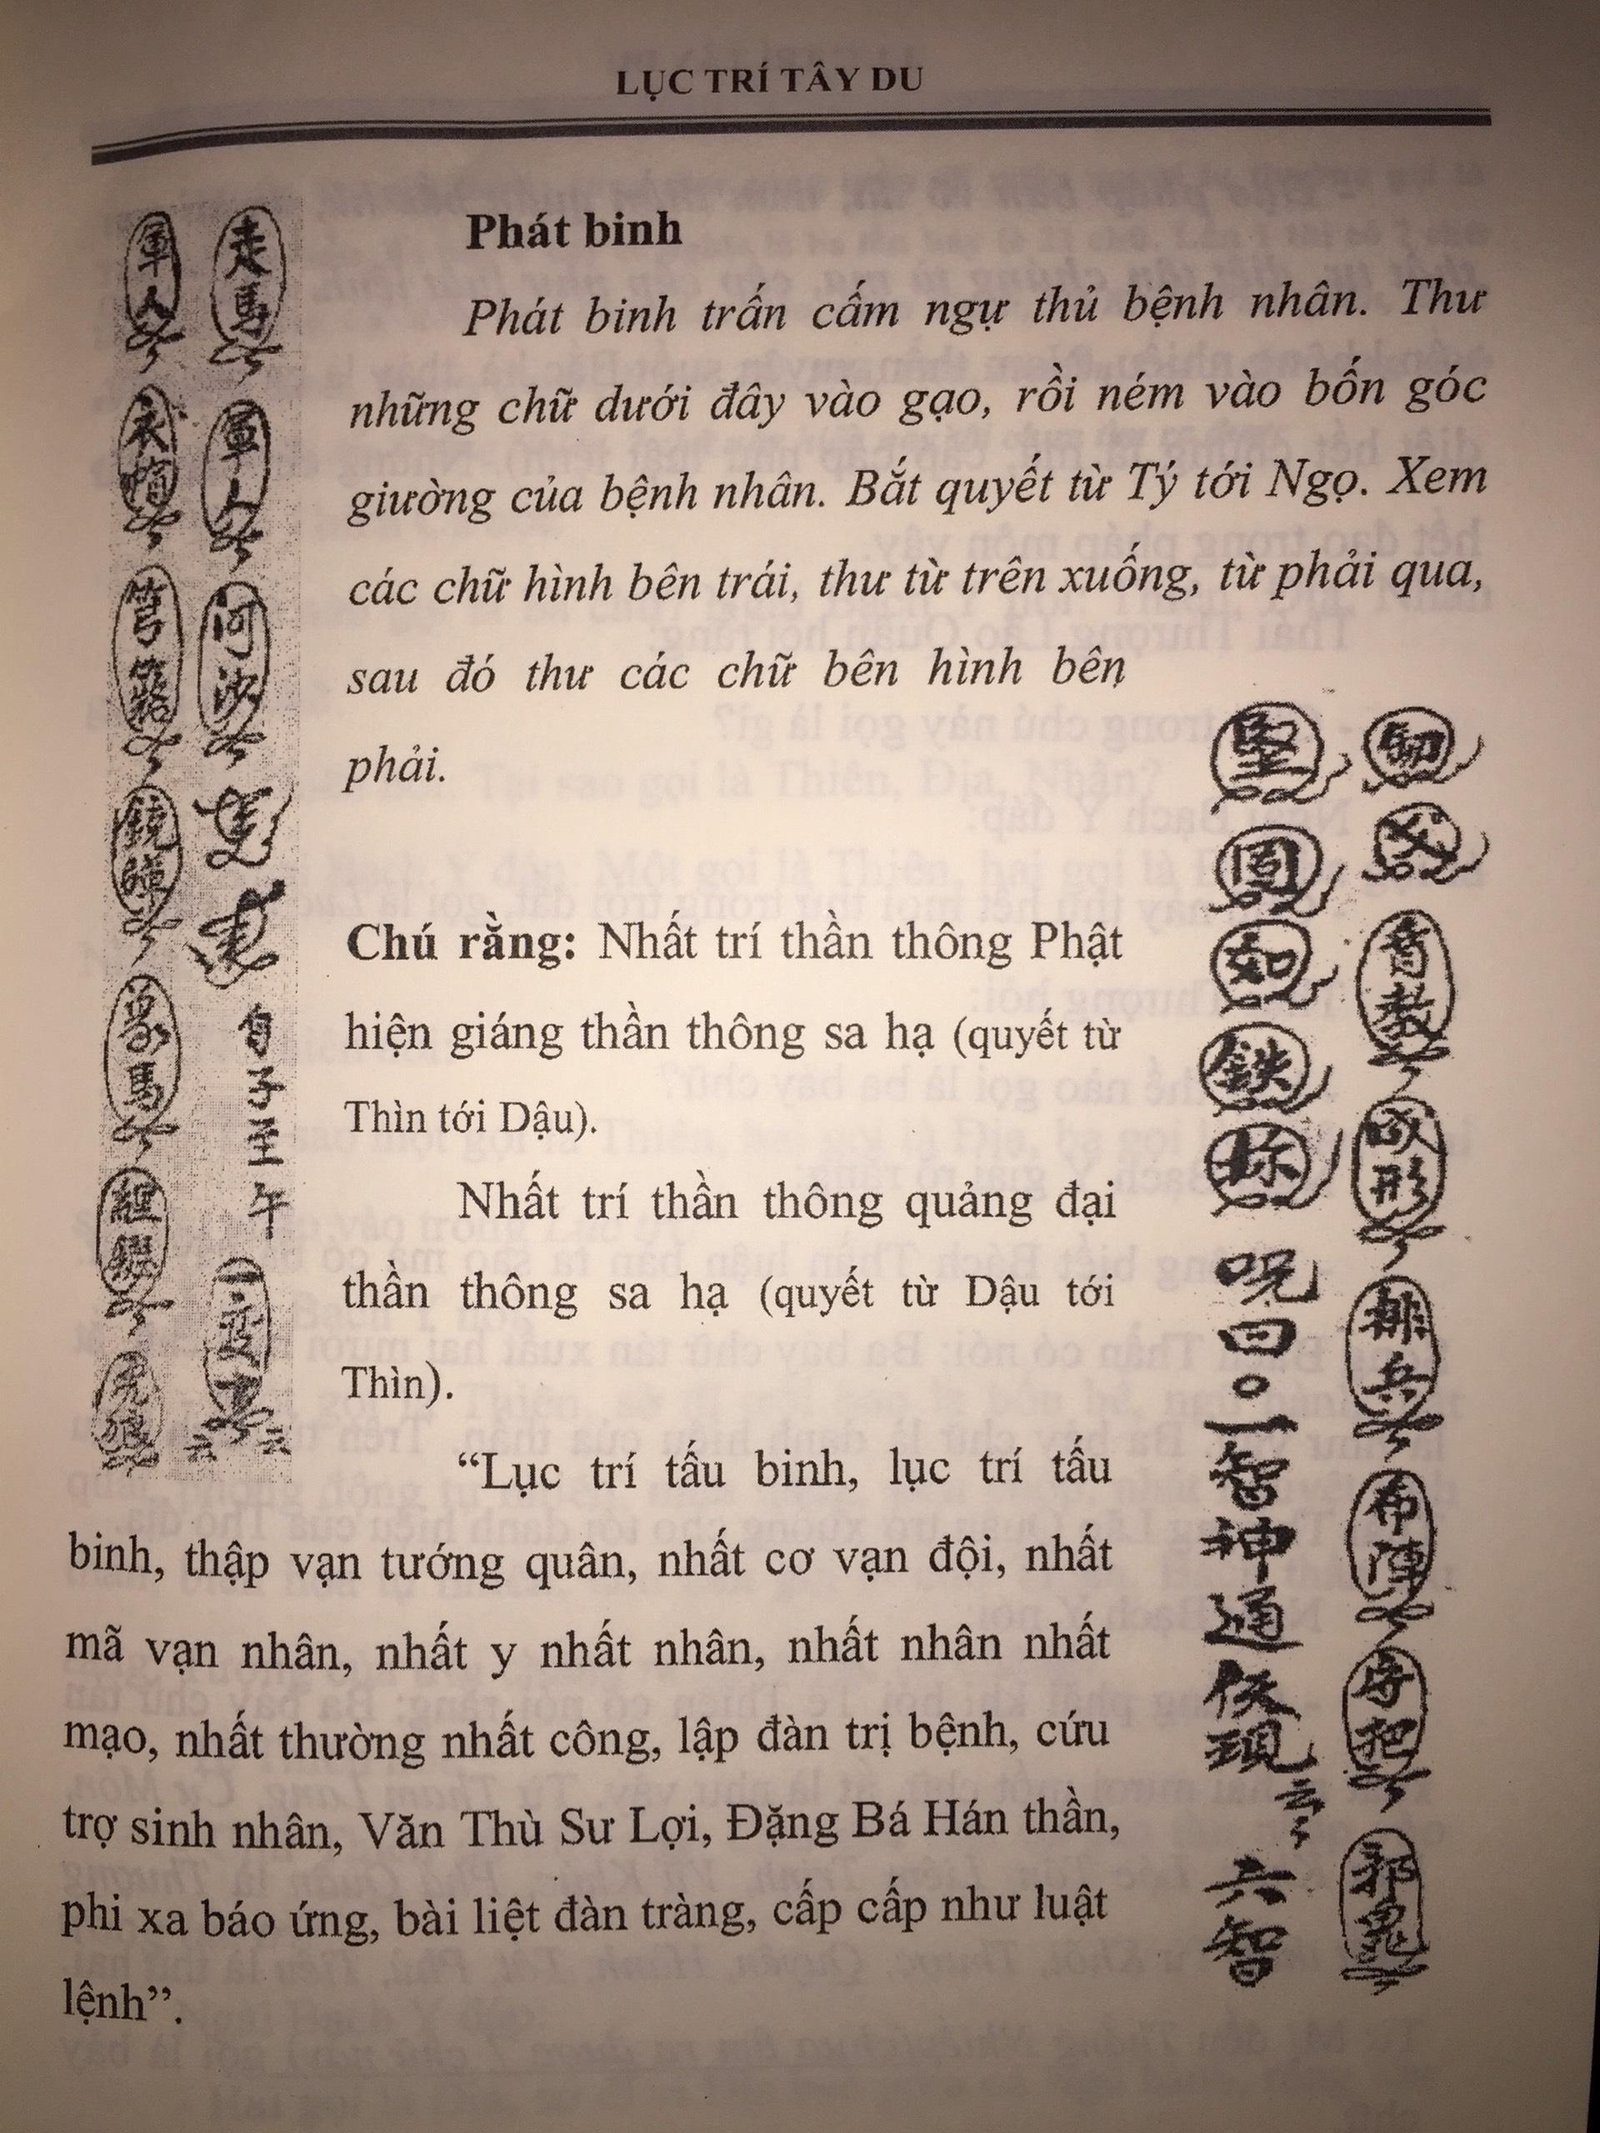 LỤC TRÍ TÂY DU
Phát binh
Phát binh trấn cấm ngự thủ bệnh nhân. Thư
những chữ dưới đây vào gạo, rồi ném vào bốn góc
giường của bệnh nhân. Bắt quyết từ Tý tới Ngọ. Xem
các chữ hình bên trái, thư từ trên xuống, từ phải qua,
sau đó thư các chữ bên hình bên
phải.
Chú rằng: Nhất trí thần thông Phật
hiện giáng thần thông sa hạ (quyết từ
Thìn tới Dậu).
Nhất trí thần thông quảng đại
thần thông sa hạ (quyết từ Dậu tới
Thìn).
“Lục trí tấu binh, lục trí tấu
binh, thập vạn tướng quân, nhất cơ vạn đội, nhất
mã vạn nhân, nhất y nhất nhân, nhất nhân nhất
mạo, nhất thường nhất công, lập đàn trị bệnh, cứu
trợ sinh nhân, Văn Thù Sư Lợi, Đặng Bá Hán thần,
phi xa báo ứng, bài liệt đàn tràng, cấp cấp như luật
lệnh”.
走馬
軍人
自子至午
軍人
萬馬
成形
兵
堅固如鉄
呪曰
智神通
現
六智